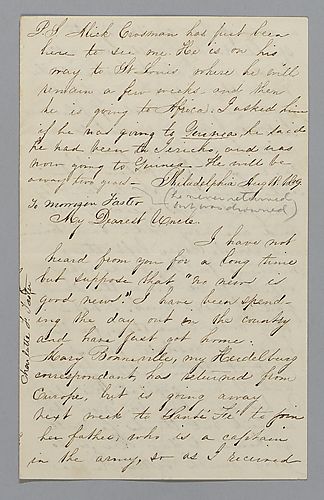 P.S Mick Crosman has just been
here to see me. He is on his
way to St Louis where he will
remain a few weeks and then
he is going to Africa. I asked him
if he was going to Guinea, he said
he had been to Jericho, and was
now going to Guinea. He will be
away two years - Philadelphia Aug
To Morrison Foster
(he never returned
but was drowned)
My Dearest Uncle.
I have not
heard from you for a long time
but suppose that "no news is
good news." I have been spend-
ing the day out in the country
and have just got home.
Mary Bonneville, my Heidelburg
correspondant, has returned from
Europe, but is going away
next week to Santa Fe to join
her father, who is a captain
in the army, so as I received
Charlotte F.